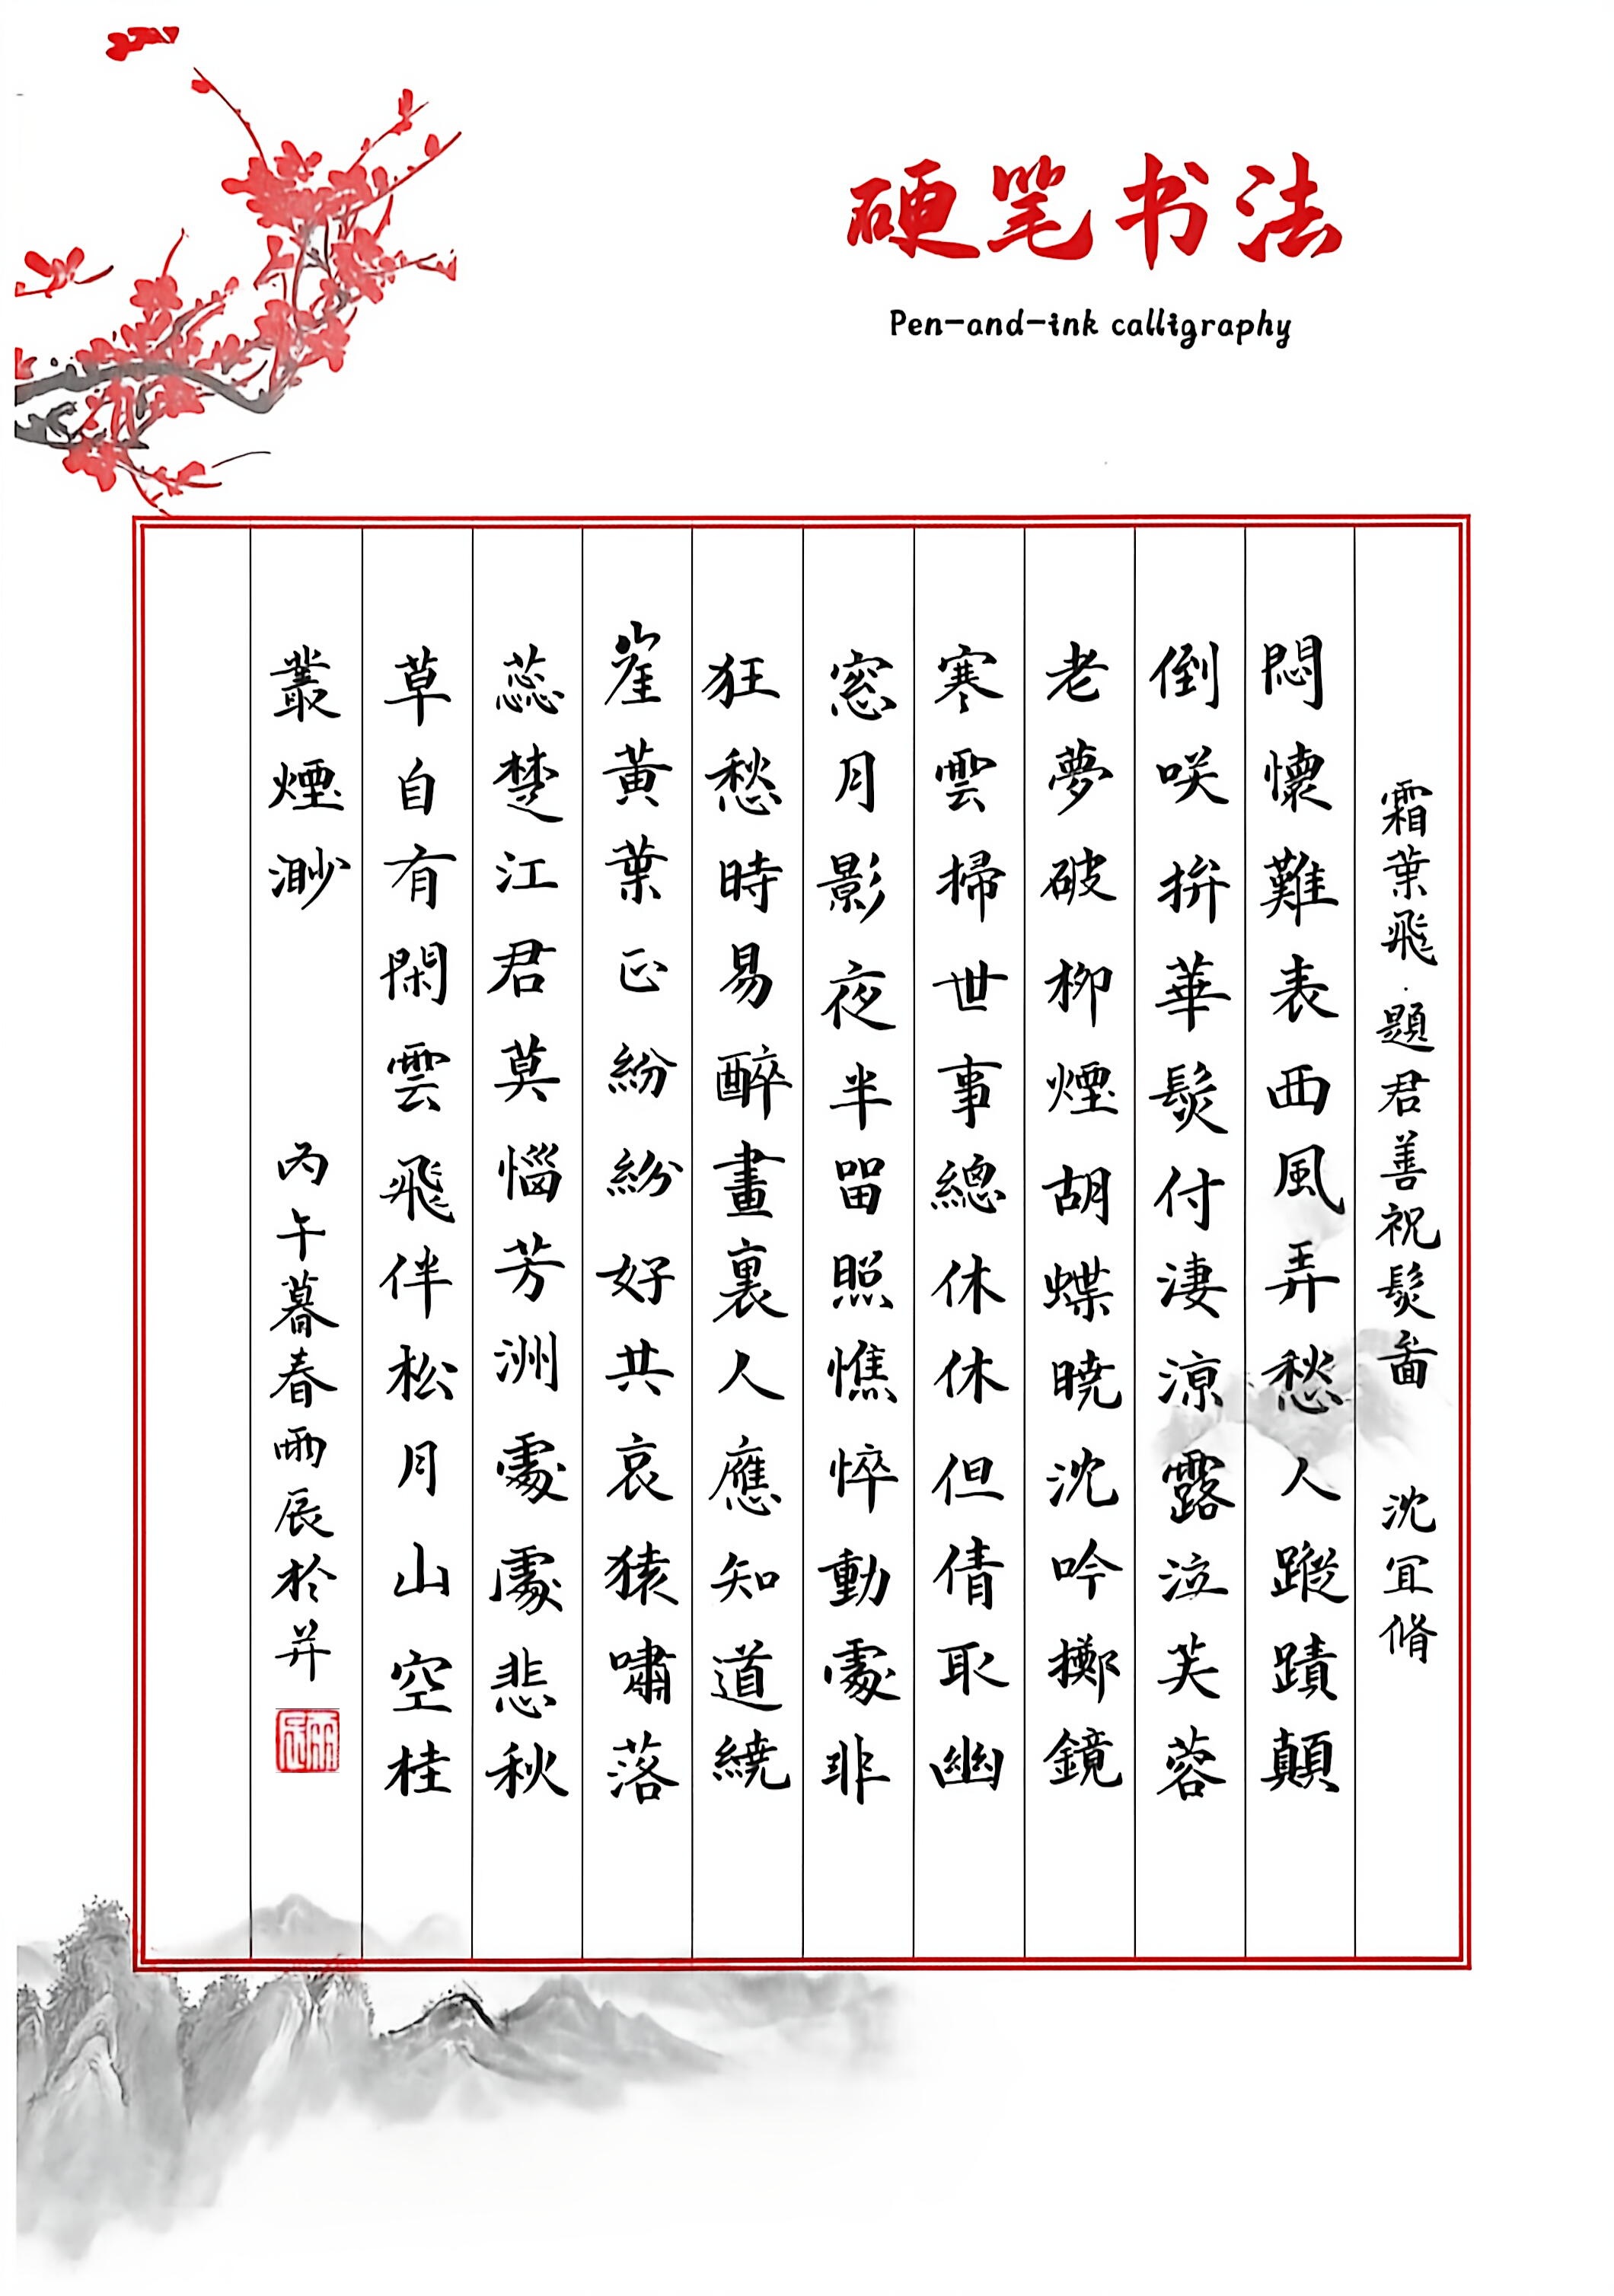 硬笔书法
Pen-and-ink calligraphy
霜葉飛·題君善祝髮啚 沈宜脩
悶懷難表西風弄愁人蹤蹟顛
倒咲拚華髮付淒涼露泣芙蓉
老夢破柳煙胡蝶曉沈吟擲鏡
寒雲掃世事總休休但倩取幽
窓月影夜半留照憔悴動處非
狂愁時易醉畫裏人應知道繞
崖黃葉正紛紛好共哀猿嘯落
蕊楚江君莫惱芳洲處處悲秋
草自有閑雲飛伴松月山空桂
叢煙渺
丙午暮春雨辰於并
雨辰